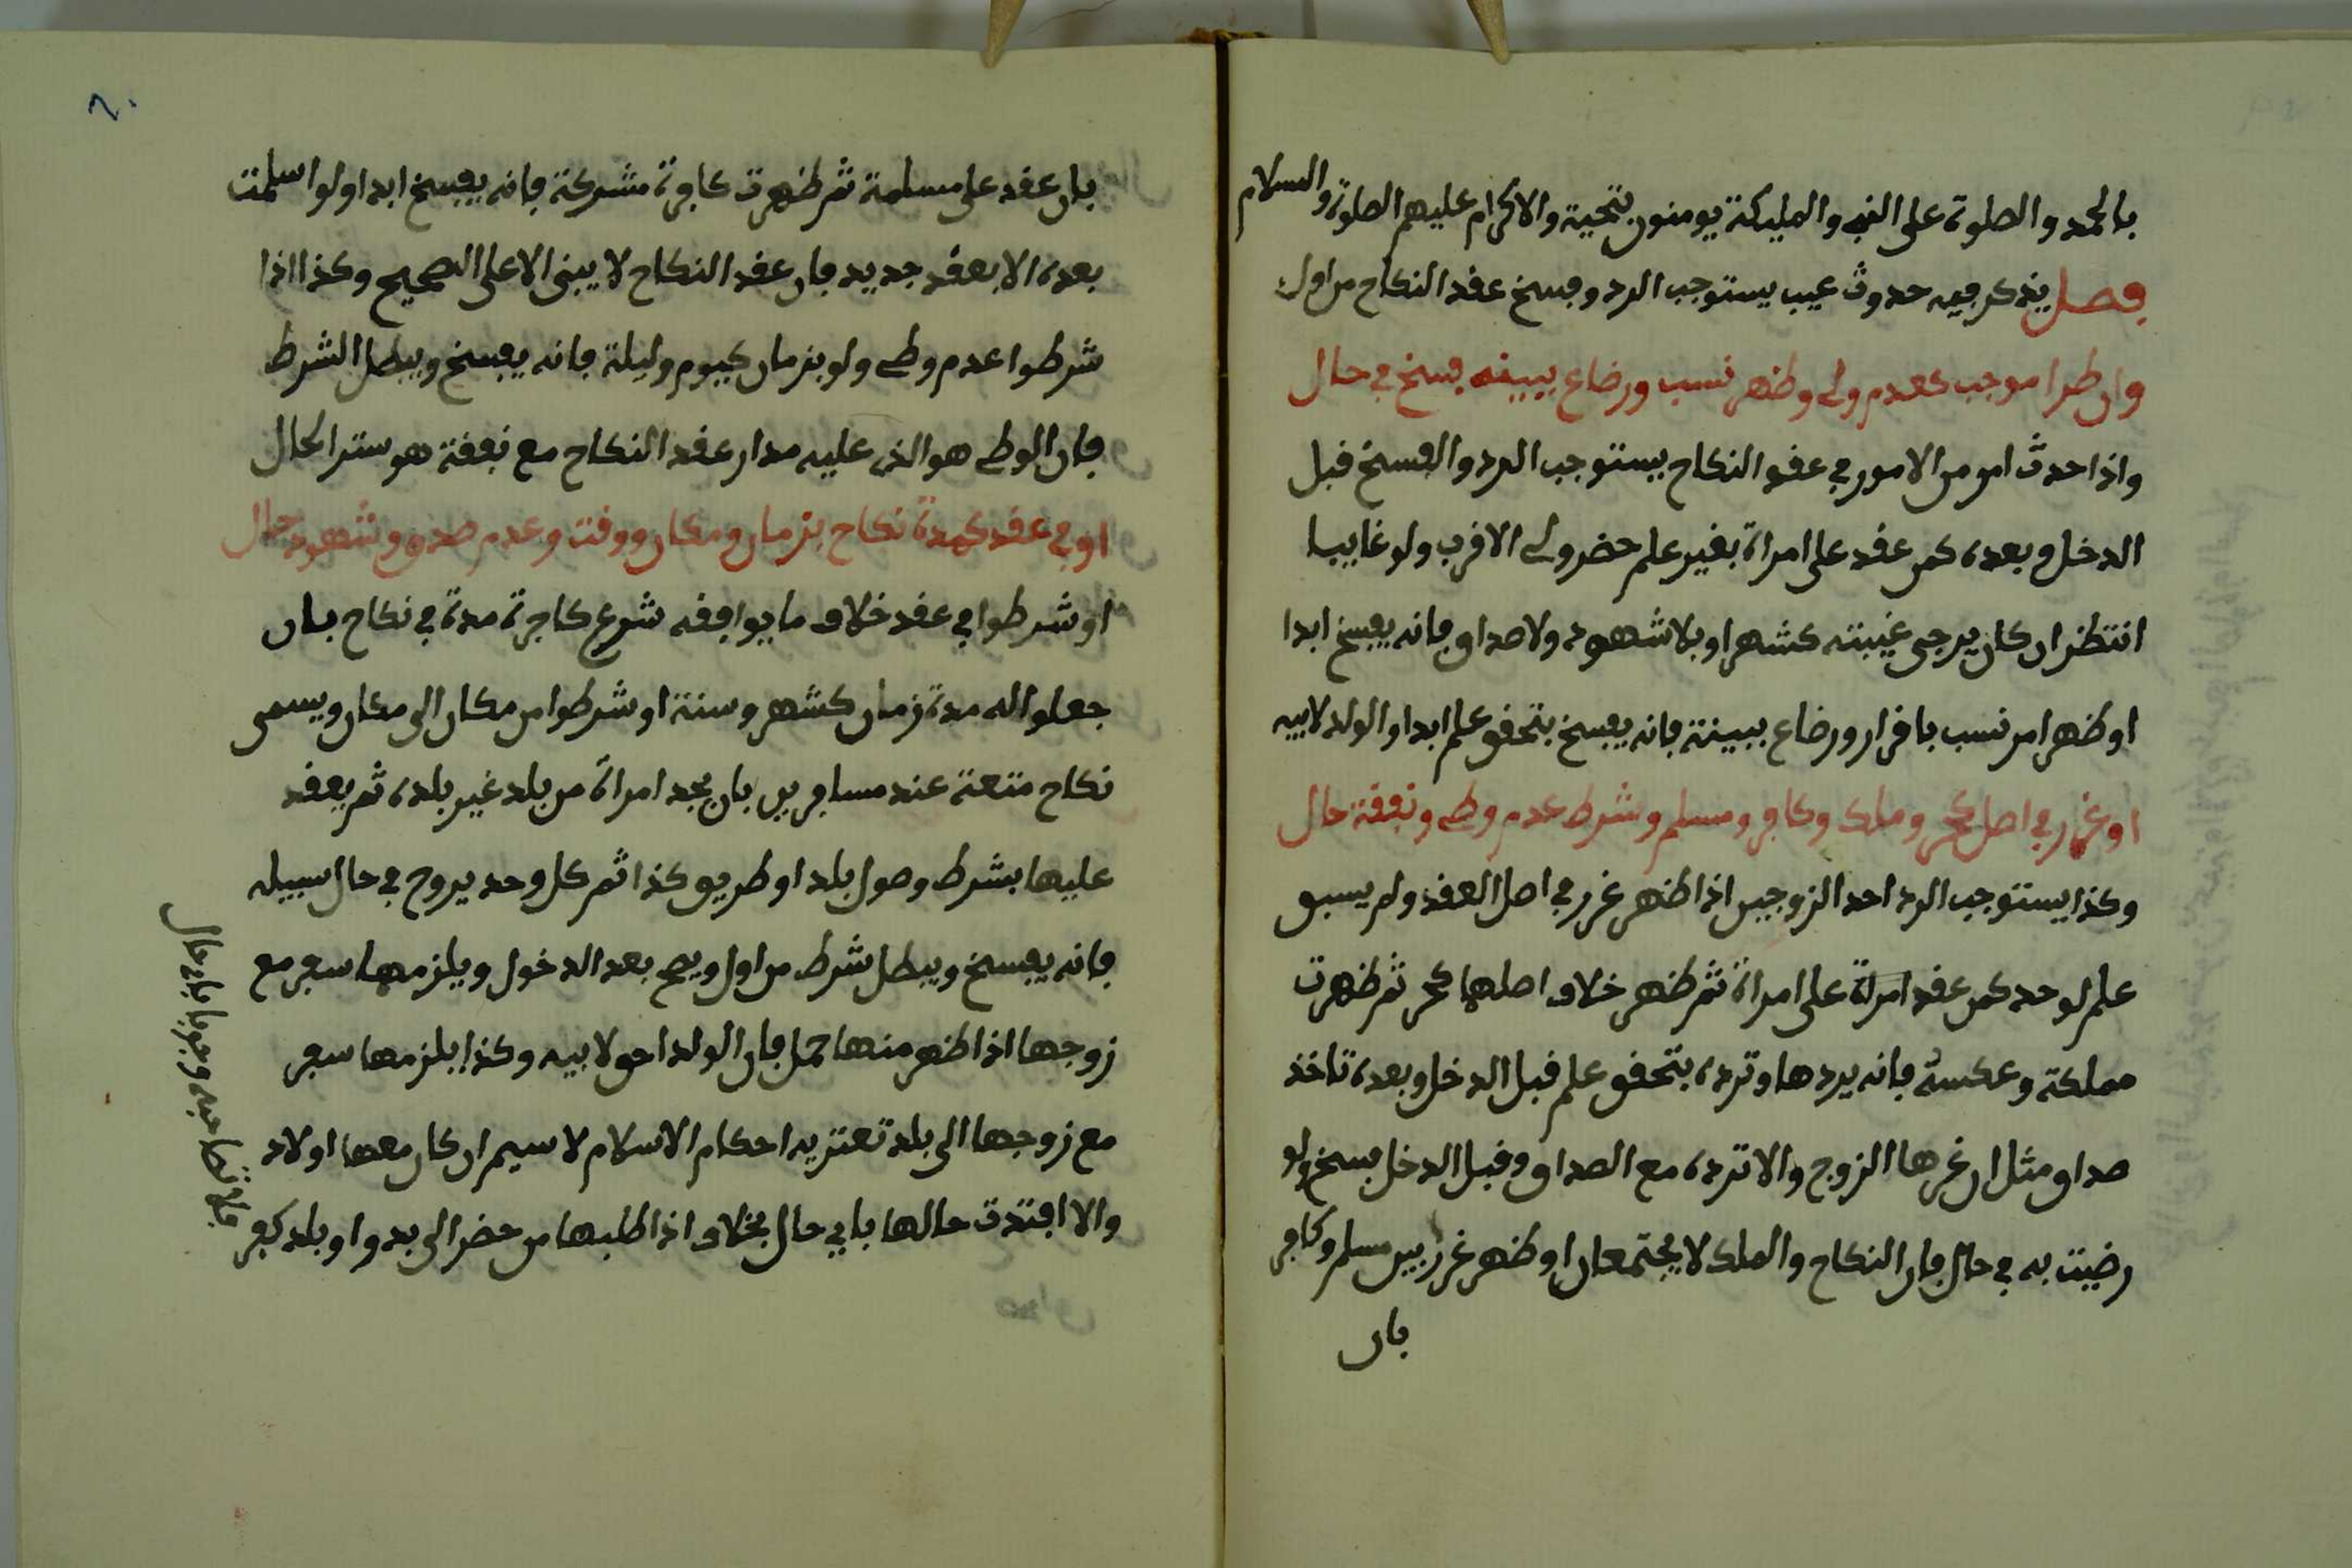 بالحمد والصلوة على النبي والمليكة يومنون بتحية والاكرام عليهم الصلوة والسلام
فصل يذكر فيه حدوث عيب يستوجب الرد وفسخ عقد النكاح من اول
وان طرا موجب كعدم ولي وظهر نسب ورضاع ببينه فسخ في حال
واذا حدث امر من الامور في عقد النكاح يستوجب الرد والفسخ قبل
الدخل وبعده كمن عقد على امراة بغير علم حضر ولي الاقرب ولو غايبا
انتظر ان كان يرجى غيبته كشهر او بلا شهود ولا صداق فانه يفسخ ابدا
او ظهر امر نسب باقرار ورضاع ببينة فانه يفسخ بتحقق علم ابدا والولد لابيه
او غرر في اصل كحر وملك وكافر ومسلم وشرط عدم وطي ونفقة حال
وكذا يستوجب الرد احد الزوجين اذا ظهر غرر في اصل العقد ولم يسبق
علم لوحد كمن عقد امراة على امراة ثم ظهر خلاف اصلها كحر ثم ظهرت
مملكة وعكسه فانه يردها وترده بتحقق علم قبل الدخل وبعده تاخذ
صداق مثل ان غرها الزوج والا ترده مع الصداق وقبل الدخل فسخ ولو
رضيت به في حال فان النكاح والملك لا يجتمعان او ظهر غرر بين مسلم وكافر
بان
٦٠
بان عقد على مسلمة ثم ظهرت كافرة مشركة فانه يفسخ ابدا ولو اسلمت
بعده الا بعقد جديد فان عقد النكاح لا يبنى الا على الصحيح وكذا اذا
شرطوا عدم وطي ولو بزمان كيوم وليلة فانه يفسخ ويبطل الشرط
فان الوطي هو الذي عليه مدار عقد النكاح مع نفقة هو ستر الحال
او في عقد كمدة نكاح بزمان ومكان ووقت وعدم صدق وشهود حال
او شرطوا في عقد خلاف ما يوافقه شرع كاجرة مدة في نكاح بان
جعلوا له مدة زمان كشهر وسنة او شرطوا من مكان الى مكان ويسمى
نكاح متعة عند مسافرين بان يجد امراة من بلد غير بلده ثم يعقد
عليها بشرط وصول بلد او طريق كذا ثم كل وحد يروح في حال سبيله
فانه يفسخ ويبطل شرط من اول ويصح بعد الدخول ويلزمها سفر مع
زوجها اذا ظهر منها حمل فان الولد احق لابيه وكذا يلزمها سفر
مع زوجها الى بلد تعتريه احكام الاسلام لا سيم ان كان معها اولاد
والا افتدت حالها باي حال بخلاف اذا طلبها من حضر الى بدو او بلد كفر